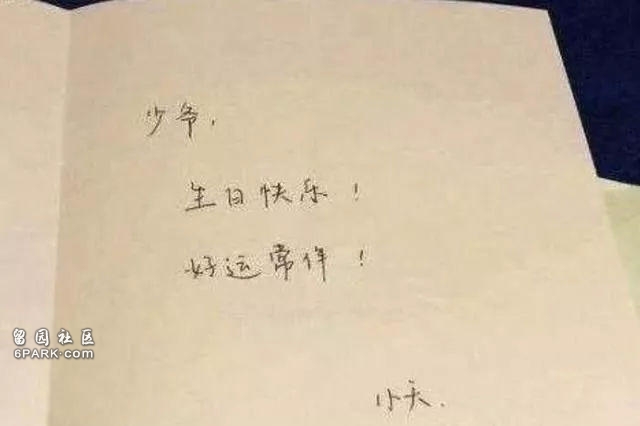 少爷，
生日快乐！
好运常伴！
小天.
留园社区
6PARK.com